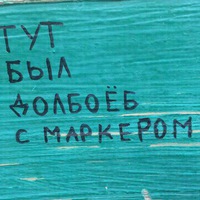 ТУТ
БЫЛ
ДОЛБОЁБ
С МАРКЕРОМ